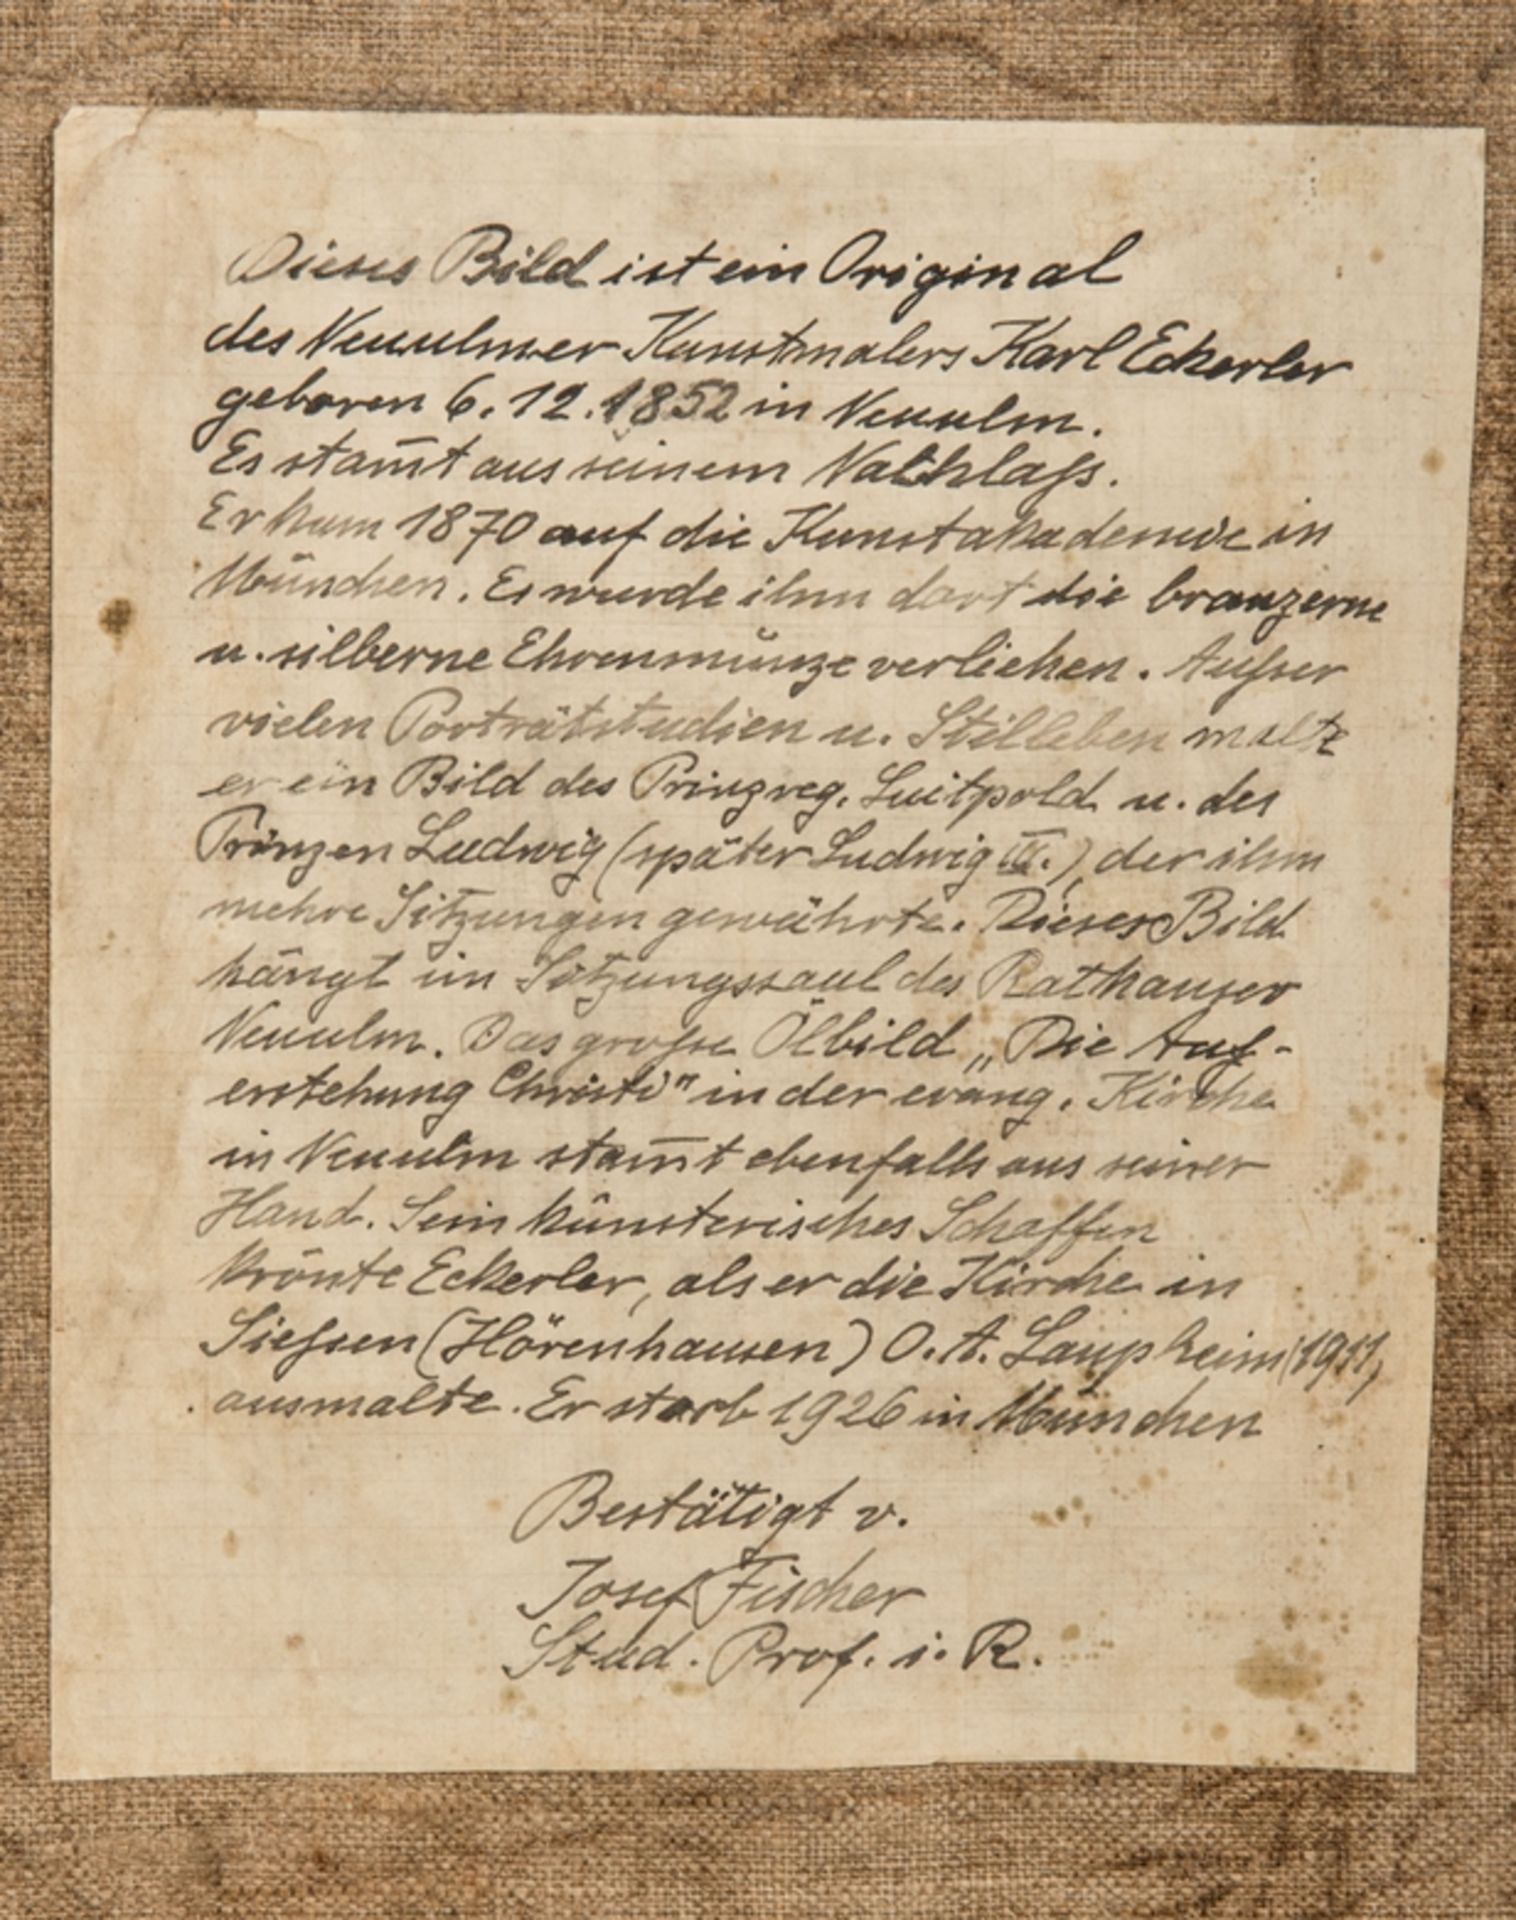 Dieses Bild ist ein Original
des Neuulmer Kunstmalers Karl Eckerler
geboren 6. 12. 1852 in Neuulm.
Es stam̄t aus seinem Nachlaß.
Er kam 1870 auf die Kunstakademie in
München. Es wurde ihm dort die bronzerne
u. silberne Ehrenmünze verliehen. Außer
vielen Porträtstudien u. Stilleben malte
er ein Bild des Prinzreg. Luitpold u. des
Prinzen Ludwig (später Ludwig III.), der ihm
mehre Sitzungen gewährte. Dieses Bild
hängt im Sitzungssaal des Rathauses
Neuulm. Das große Ölbild „Die Auf-
erstehung Christi" in der evang. Kirche
in Neuulm stam̄t ebenfalls aus seiner
Hand. Sein künsterisches Schaffen
krönte Eckerler, als er die Kirche in
Sießen (Hörenhausen) O. A. Laupheim (1911)
ausmalte. Er starb 1926 in München
Bestätigt v.
Josef Fischer
Stud. Prof. i. R.